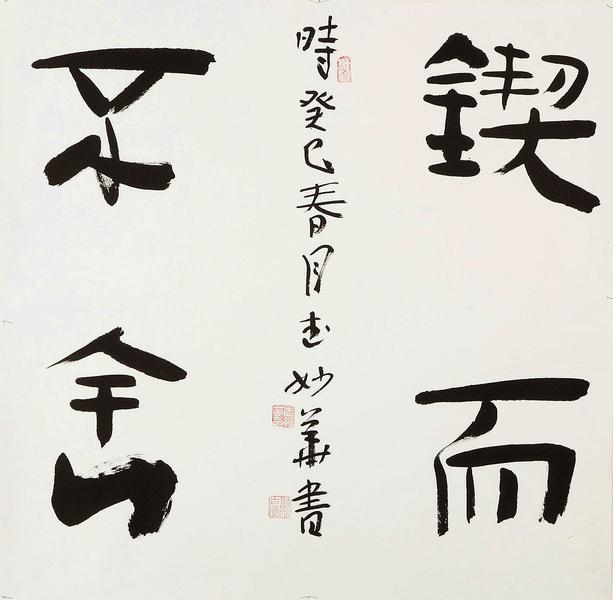 鍥而
不舍
時癸巳春月妙華書